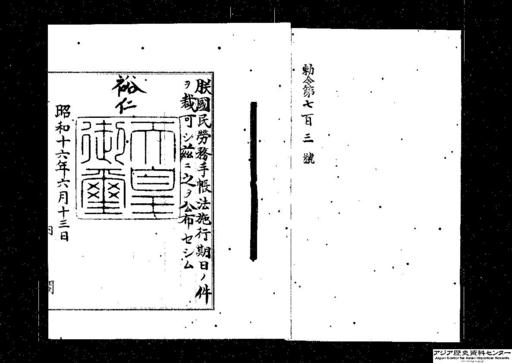 勅令第七百三號
朕國民勞務手帳法施行期日ノ件
ヲ裁可シ茲ニ之ヲ公布セシム
裕仁
天皇
御璽
昭和十六年六月十三日
内閣
アジア歴史資料センター
Japan Center for Asian Historical Records